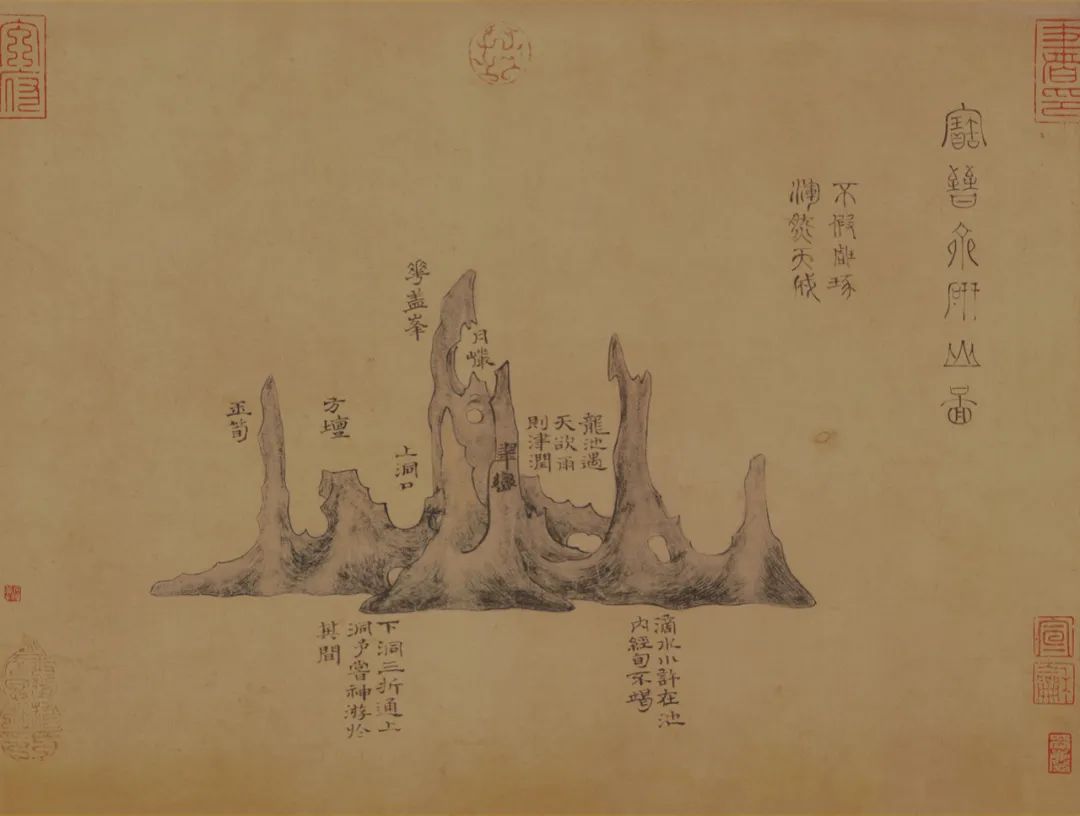 寶晉齋研山圖
不假雕琢
渾然天成
龍池遇
天欲雨
則津潤
月巖
翠巒
華蓋峯
上洞口
方壇
玉筍
滴水小許在池
內經旬不竭
下洞三折通上
洞予嘗神游於
其間
宣龢